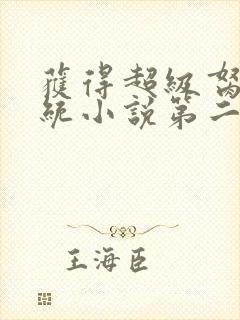 獲得超級
統小說第二
王海臣